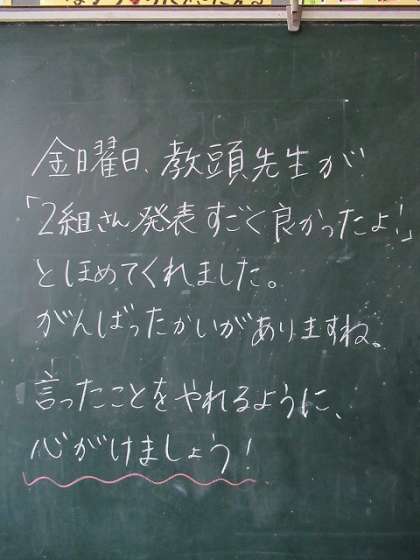 金曜日、教頭先生が
「2組さん発表すごく良かったよ!」
とほめてくれました。
がんばったかいがありますね。
言ったことをやれるように、
心がけましょう!